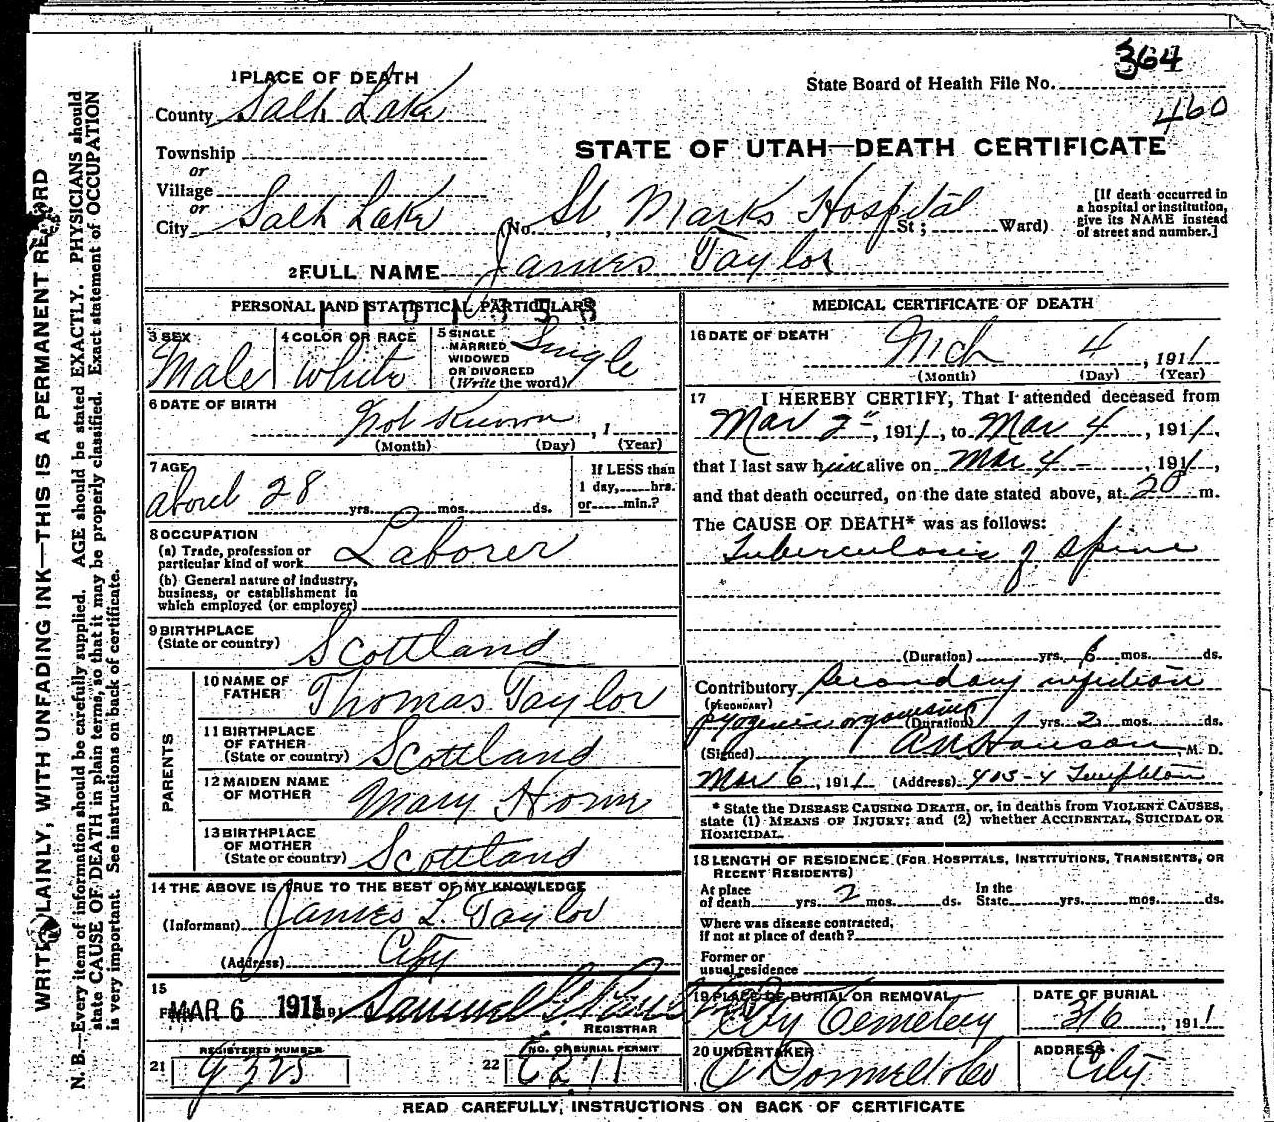 364
State Board of Health File No.
460
1 PLACE OF DEATH
County Salt Lake
Township
or
Village
or
City Salt Lake (No. St Marks Hospital St; Ward)
STATE OF UTAH—DEATH CERTIFICATE
[If death occurred in
a hospital or institution,
give its NAME instead
of street and number.]
2 FULL NAME James Taylor
PERSONAL AND STATISTICAL PARTICULARS
3 SEX
Male
4 COLOR OR RACE
White
5 SINGLE
MARRIED
WIDOWED
OR DIVORCED
(Write the word)
Single
6 DATE OF BIRTH
Not Known , 1
(Month) (Day) (Year)
7 AGE
about 28 yrs. mos. ds.
If LESS than
1 day, hrs.
or min.?
8 OCCUPATION
(a) Trade, profession or
particular kind of work Laborer
(b) General nature of industry,
business, or establishment in
which employed (or employer)
9 BIRTHPLACE
(State or country) Scottland
PARENTS
10 NAME OF
FATHER Thomas Taylor
11 BIRTHPLACE
OF FATHER
(State or country) Scottland
12 MAIDEN NAME
OF MOTHER Mary
13 BIRTHPLACE
OF MOTHER
(State or country) Scottland
14 THE ABOVE IS TRUE TO THE BEST OF MY KNOWLEDGE
(Informant) James L. Taylor
(Address) City
15
MAR 6 1911 Samuel G.
REGISTRAR
REGISTERED NUMBER
21 9325
NO. OF BURIAL PERMIT
22
MEDICAL CERTIFICATE OF DEATH
16 DATE OF DEATH
Mch 4 , 1911
(Month) (Day) (Year)
17 I HEREBY CERTIFY, That I attended deceased from
Mar 2", 1911, to Mar 4, 1911,
that I last saw him alive on Mar 4 – 1911,
and that death occurred, on the date stated above, at 20 m.
The CAUSE OF DEATH* was as follows:
Tuberculosis of Spine
(Duration) yrs. 6 mos. ds.
Contributory Secondary infection
(SECONDARY)
pyogenic organisms (Duration) 1 yrs. 2 mos. ds.
(Signed) M. D.
Mar 6, 1911 (Address) 405-4 Templeton
* State the DISEASE CAUSING DEATH, or, in deaths from VIOLENT CAUSES,
state (1) MEANS OF INJURY; and (2) whether ACCIDENTAL, SUICIDAL OR
HOMICIDAL.
18 LENGTH OF RESIDENCE (FOR HOSPITALS, INSTITUTIONS, TRANSIENTS, OR
RECENT RESIDENTS)
At place
of death yrs. 2 mos. ds.
In the
State yrs. mos. ds.
Where was disease contracted,
if not at place of death?
Former or
usual residence
19 PLACE OF BURIAL OR REMOVAL
City Cemetery
DATE OF BURIAL
3/6 , 1911
20 UNDERTAKER
O Donnell & Co
ADDRESS
City
READ CAREFULLY, INSTRUCTIONS ON BACK OF CERTIFICATE
WRITE PLAINLY, WITH UNFADING INK—THIS IS A PERMANENT RECORD
N. B.—Every item of information should be carefully supplied. AGE should be stated EXACTLY. PHYSICIANS should
state CAUSE OF DEATH in plain terms, so that it may be properly classified. Exact statement of OCCUPATION
is very important. See instructions on back of certificate.